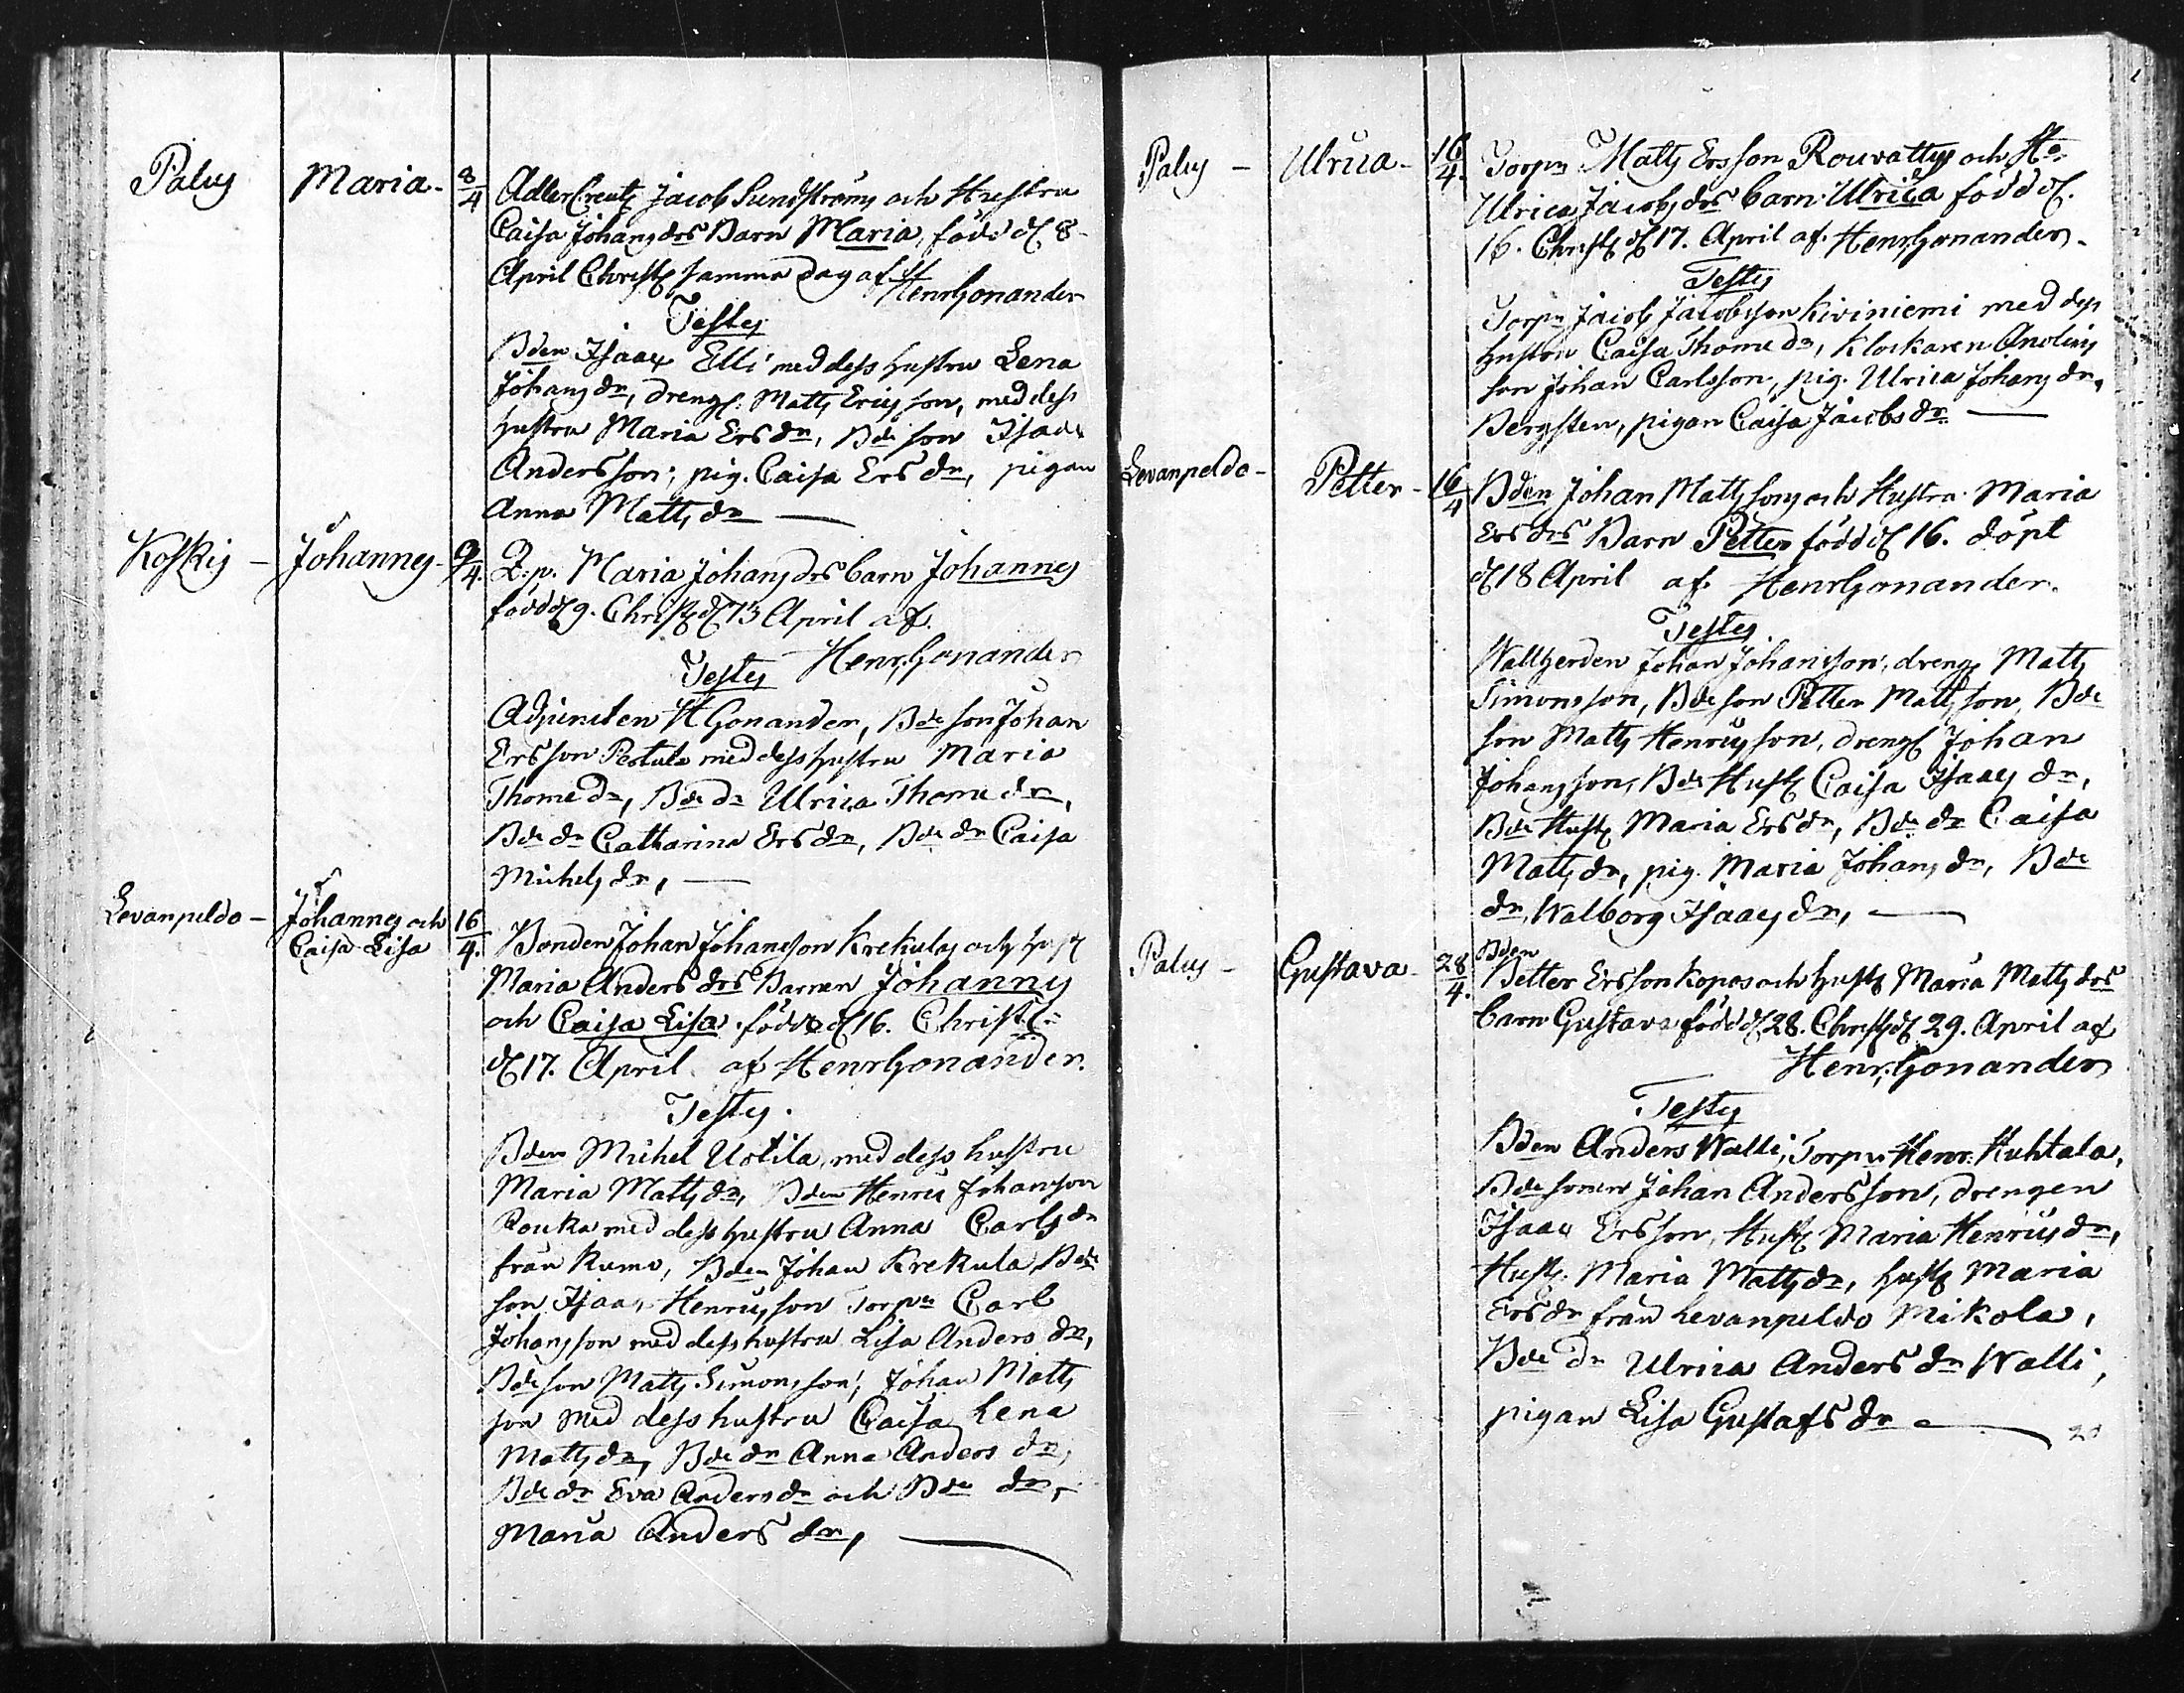 Palus Maria - 8/4 AdlerCreutz Jacob Sundströms och Hustru
Caisa Johans drs Barn Maria, född d. 8
April Christ. samma dag af Henr Gonander
Testes
Bden Isaac Elli med dess hustru Lena
Johans dr, dreng: Matts Ericsson, med dess
hustru Maria Ers dr, Bde son Isaac
Andersson, pig. Caisa Ers dr, pigan
Anna Matts dr
Koskis - Johannes - 9/4. Q: p. Maria Johans drs barn Johannes
född d 9. Christ d 13 April af.
Henr. Gonander
Testes
Adjuncten H Gonander, Bde son Johan
Ersson Pertula med dess hustru Maria
Thome dr, Bde dr Ulrica Thome dr,
Bde dr Catharina Ers dr, Bde dr Caisa
Michels dr,
Levanpeldo - Johannes och 16/4. Bonden Johan Johansson Krekulas och hust
Caisa Lisa
Maria Anders drs Barnen Johannes
och Caisa Lisa födde d 16. Christ.
d 17. April af Henr Gonander.
Testes.
Bden Michel Uotila, med dess hustru
Maria Matts dr, Bden Henric Johansson
Rouka med dess hustru Anna Carls dr
från Kumo, Bden Johan Krekula, Bde
son Isaac Henricsson Torpn Carl
Johansson med dess hustru Lisa Anders dr,
Bde son Matts Simonsson, Johan Matts
son med dess hustru Caisa Lena
Matts dr, Bde dr Anna Anders dr,
Bde dr Eva Anders dr och Bde dr,
Maria Anders dr,
Palus - Ulrica - 16/4. Torpn Matts Ersson Rouvattus och Ho
Ulrica Jacobs drs barn: Ulrica född d.
16. Christ d 17. April af. Henr Gonander.
Testes
Torpn Jacob Jacobsson Kiviniemi med dess
hustru Caisa Thome dr, Klockaren Anolins
son Johan Carlsson, pig. Ulrica Johans dr,
Bergsten, pigan Caisa Jacobs dr.
Levanpeldo - Petter - 16/4 Bden Johan Mattssons och Hustru Maria
Ers drs Barn Petter född d 16. döpt
d 18 April af. Henr Gonander.
Testes.
Wallherden Johan Johansson, dreng Matts
Simonsson, Bde son Petter Mattsson, Bde
son Matts Henricsson, dreng Johan
Johansson, Bde Hust Caisa Isaacs dr,
Bde Hust Maria Ers dr, Bde dr Caisa
Matts dr, pig. Maria Johans dr, Bde
dr, Walborg Isaacs dr,
Palus - Gustava - 28/4. Bden
Petter Ersson Kopos och hust Maria Matts drs
barn Gustava född d 28. Christ d 29. April af
Henr: Gonander
Testes
Bden Anders Walli, Torpn Henr. Kuhtala,
Bde sonen Johan Andersson, drengen
Isaac Ersson, Hust Maria Henrics dr,
Hust. Maria Matts dr, hust Maria
Ers dr från Levanpeldo Mikola,
Bde dr Ulrica Anders dr Walli,
pigan Lisa Gustafs dr
20